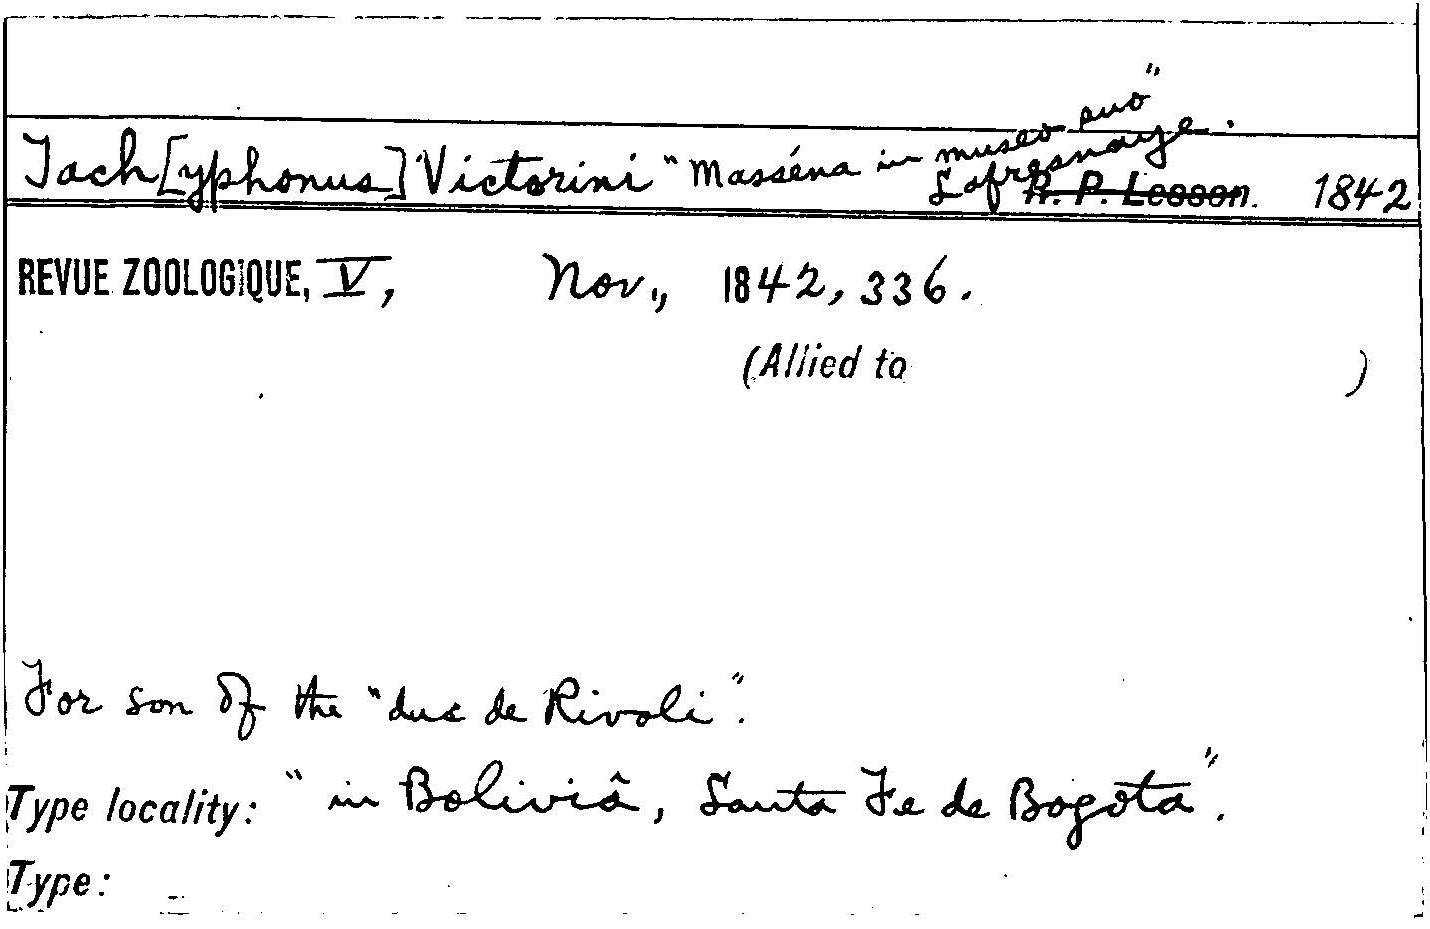 Tach[yphonus] Victorini "Masséna in museo suo"
Lafresnaye. R. P. Lesson. 1842
REVUE ZOOLOGIQUE, V, Nov., 1842, 336.
(Allied to )
For son of the "duc de Rivoli".
Type locality: "in Boliviâ, Santa Fe de Bogota".
Type: